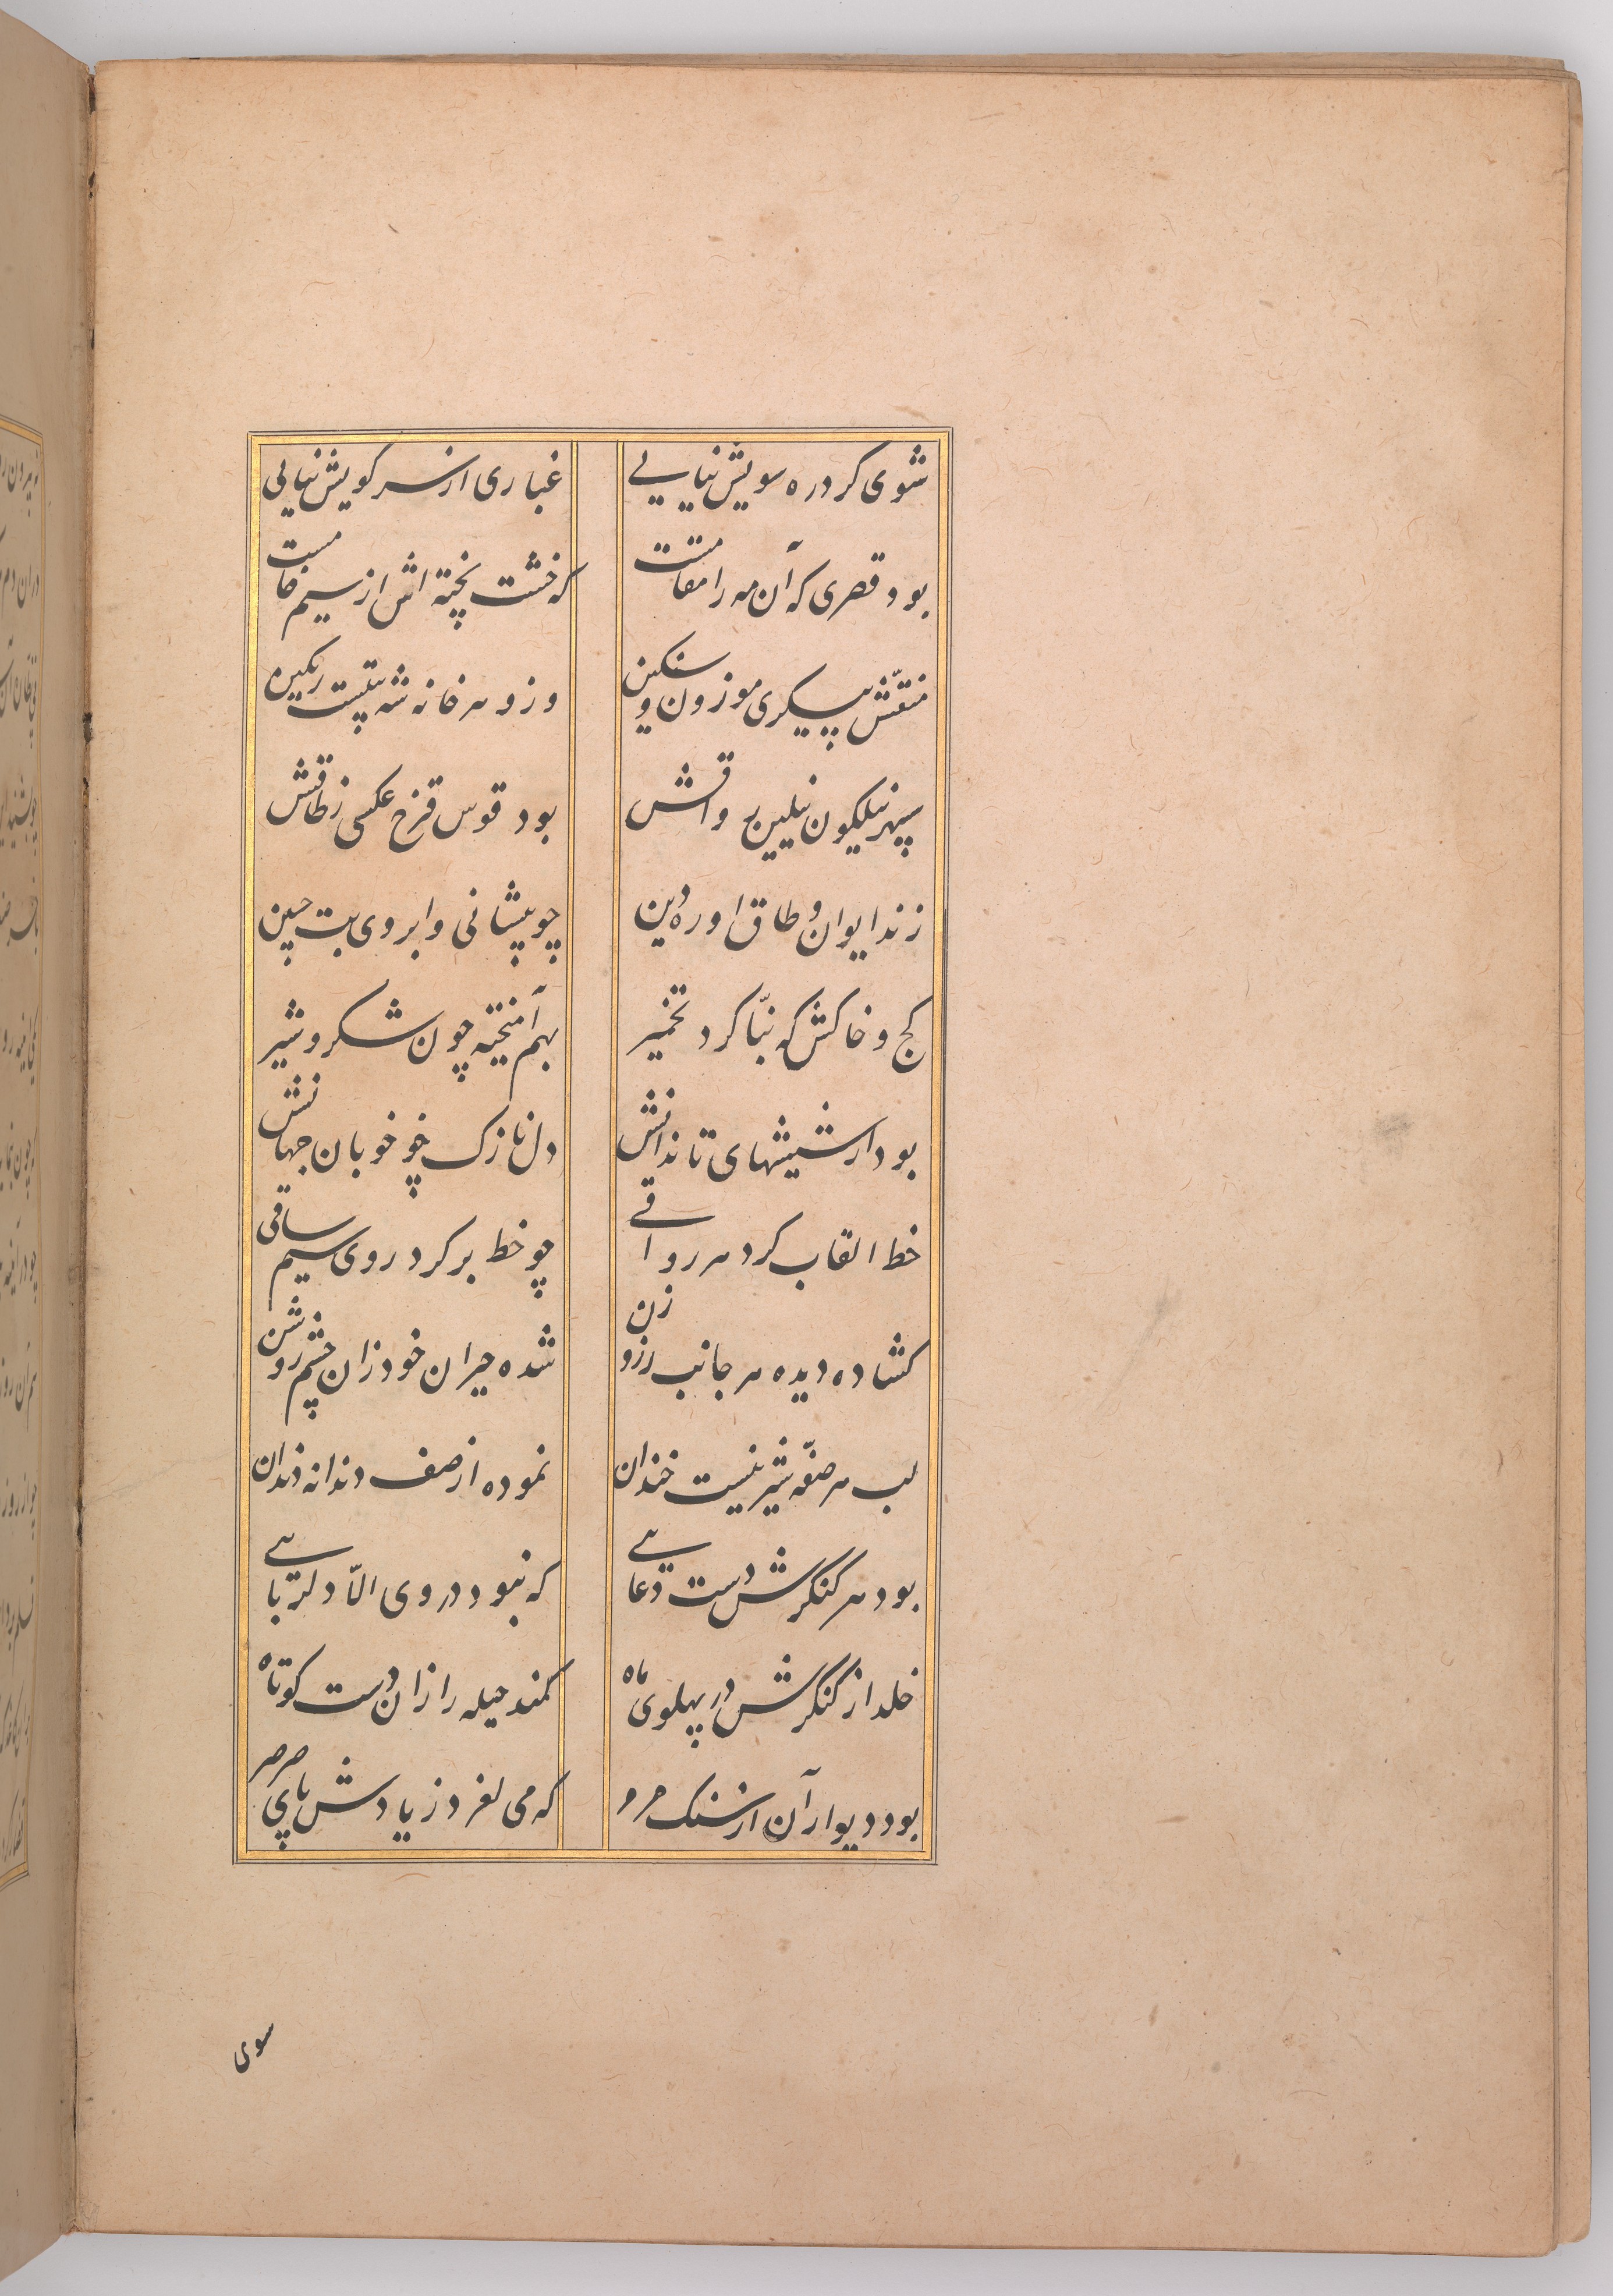 شوی گر دره سویش نیایی غباری از سر کویش نیایی
بود قصری که آن مه را مقامست که خشت پخته اش از سیم خامست
منقّش پیکری موزون و سنکین وزو هر خانه شه بیتیست رنکین
سپهر نیلکون نیلین رواقش بود قوس قزح عکسی ز طاقش
زند ایوان و طاق او ره دین چو پیشانی و ابروی بت چین
کج و خاکش که بنّا کرد تخمیر بهم آمیخته چون شکر و شیر
بود از شیشهای تا ندانش دل نازک چو خوبان جهانش
خط القاب کرد هر رواقی چو خط بر کرد روی سیم ساقی
کشاده دیده هر جانب ز روزن شده حیران خود زان چشم روشن
لب هر صفّه شیرینیست خندان نموده از صف دندانه دندان
بود هر کنکرش دست دعایی که نبود در وی الّا دلربایی
خلد از کنکرش در پهلوی ماه کمند حیله را زان دست کوتاه
بود دیوار آن از سنک مرمر که می لغزد ز یادش پای صرصر
سوی